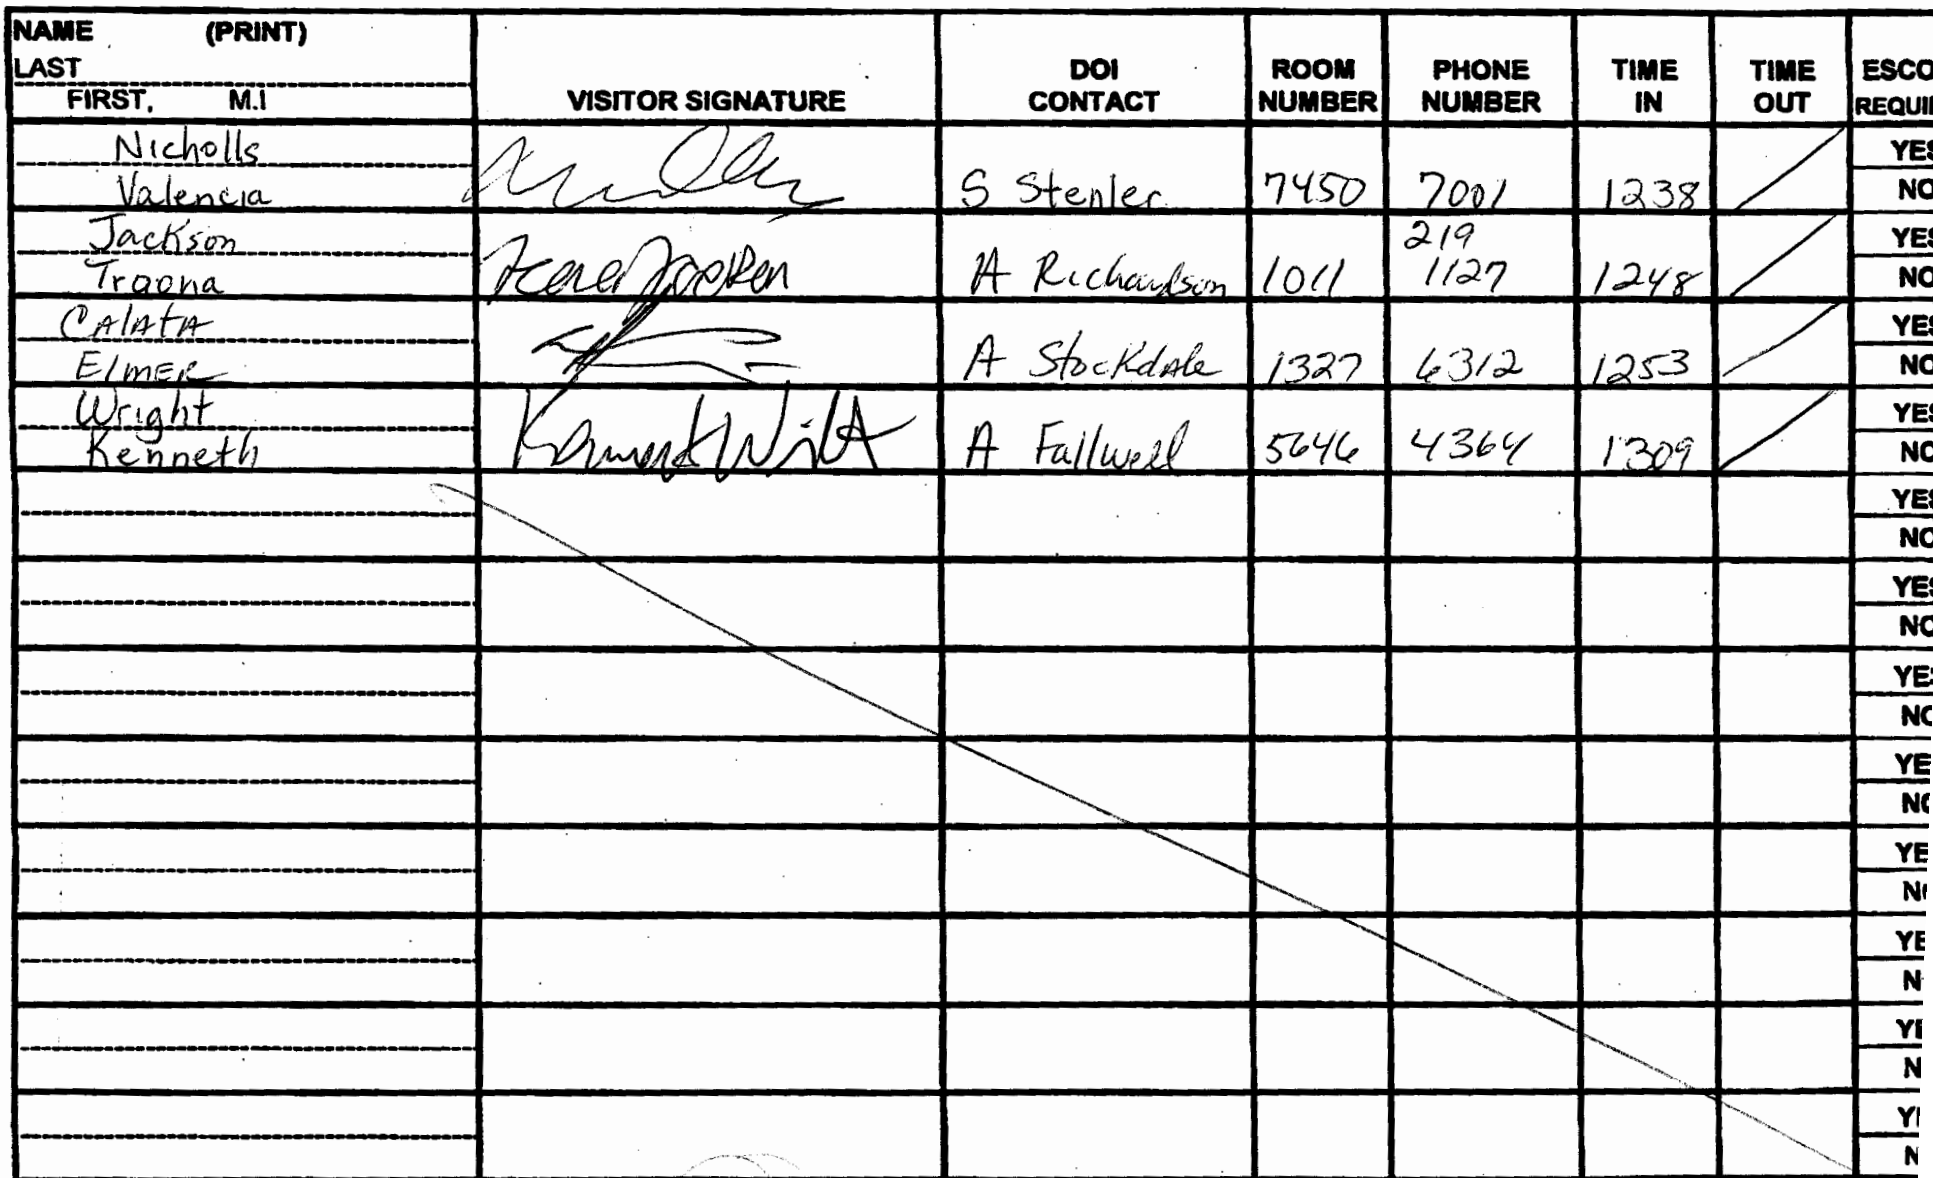 NAME (PRINT)
LAST
FIRST, M.I
VISITOR SIGNATURE
DOI
CONTACT
ROOM
NUMBER
PHONE
NUMBER
TIME
IN
TIME
OUT
ESCO
REQUI
Nicholls
Valencia
S Stenler 7450 7001 1238
YES
NO
Jackson
Traona
A Richardson 1011 219 1127 1248
YES
NO
CAlAtA
ElmER
A Stockdale 1327 6312 1253
YES
NO
Wright
Kenneth
A Fallwell 5646 4364 1309
YES
NO
YES
NO
YES
NO
YES
NO
YE
NO
YE
N
YE
N
YE
N
Y
N